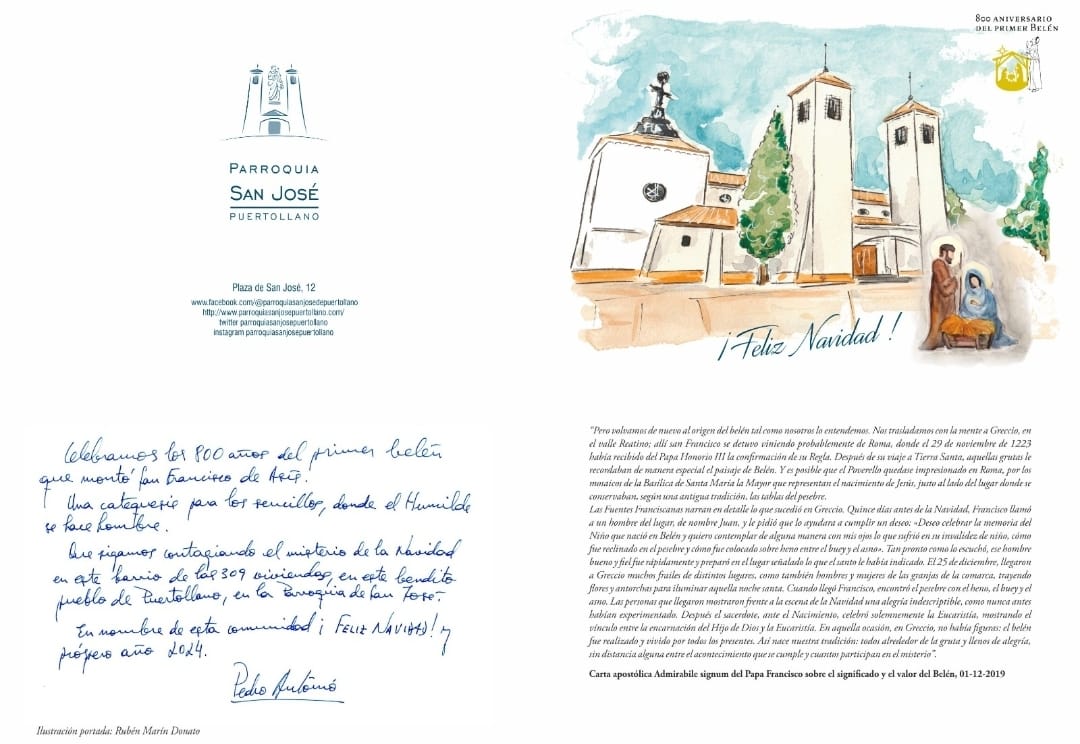 PARROQUIA
SAN JOSÉ
PUERTOLLANO
Plaza de San José, 12
www.facebook.com/@parroquiasanjosedepuertollano
http://www.parroquiasanjosepuertollano.com/
twitter parroquiasanjosepuertollano
instagram parroquiasanjosepuertollano
800 ANIVERSARIO
DEL PRIMER BELÉN
¡Feliz Navidad!
Celebramos los 800 años del primer belén
que montó San Francisco de Asís.
Una catequesis para los sencillos, donde el Humilde
se hace hombre.
Que sigamos contagiando el misterio de la Navidad
en este barrio de las 309 viviendas, en este bendito
pueblo de Puertollano, en la Parroquia de San José.
En nombre de esta comunidad ¡FELIZ NAVIDAD! y
próspero año 2024.
Pedro Antonio
Ilustración portada: Rubén Marín Donato
"Pero volvamos de nuevo al origen del belén tal como nosotros lo entendemos. Nos trasladamos con la mente a Greccio, en
el valle Reatino; allí san Francisco se detuvo viniendo probablemente de Roma, donde el 29 de noviembre de 1223
había recibido del Papa Honorio III la confirmación de su Regla. Después de su viaje a Tierra Santa, aquellas grutas le
recordaban de manera especial el paisaje de Belén. Y es posible que el Poverello quedase impresionado en Roma, por los
mosaicos de la Basílica de Santa María la Mayor que representan el nacimiento de Jesús, justo al lado del lugar donde se
conservaban, según una antigua tradición, las tablas del pesebre.
Las Fuentes Franciscanas narran en detalle lo que sucedió en Greccio. Quince días antes de la Navidad, Francisco llamó
a un hombre del lugar, de nombre Juan, y le pidió que lo ayudara a cumplir un deseo: «Deseo celebrar la memoria del
Niño que nació en Belén y quiero contemplar de alguna manera con mis ojos lo que sufrió en su invalidez de niño, cómo
fue reclinado en el pesebre y cómo fue colocado sobre heno entre el buey y el asno». Tan pronto como lo escuchó, ese hombre
bueno y fiel fue rápidamente y preparó en el lugar señalado lo que el santo le había indicado. El 25 de diciembre, llegaron
a Greccio muchos frailes de distintos lugares, como también hombres y mujeres de las granjas de la comarca, trayendo
flores y antorchas para iluminar aquella noche santa. Cuando llegó Francisco, encontró el pesebre con el heno, el buey y el
asno. Las personas que llegaron mostraron frente a la escena de la Navidad una alegría indescriptible, como nunca antes
habían experimentado. Después el sacerdote, ante el Nacimiento, celebró solemnemente la Eucaristía, mostrando el
vínculo entre la encarnación del Hijo de Dios y la Eucaristía. En aquella ocasión, en Greccio, no había figuras: el belén
fue realizado y vivido por todos los presentes. Así nace nuestra tradición: todos alrededor de la gruta y llenos de alegría,
sin distancia alguna entre el acontecimiento que se cumple y cuantos participan en el misterio".
Carta apostólica Admirabile signum del Papa Francisco sobre el significado y el valor del Belén, 01-12-2019